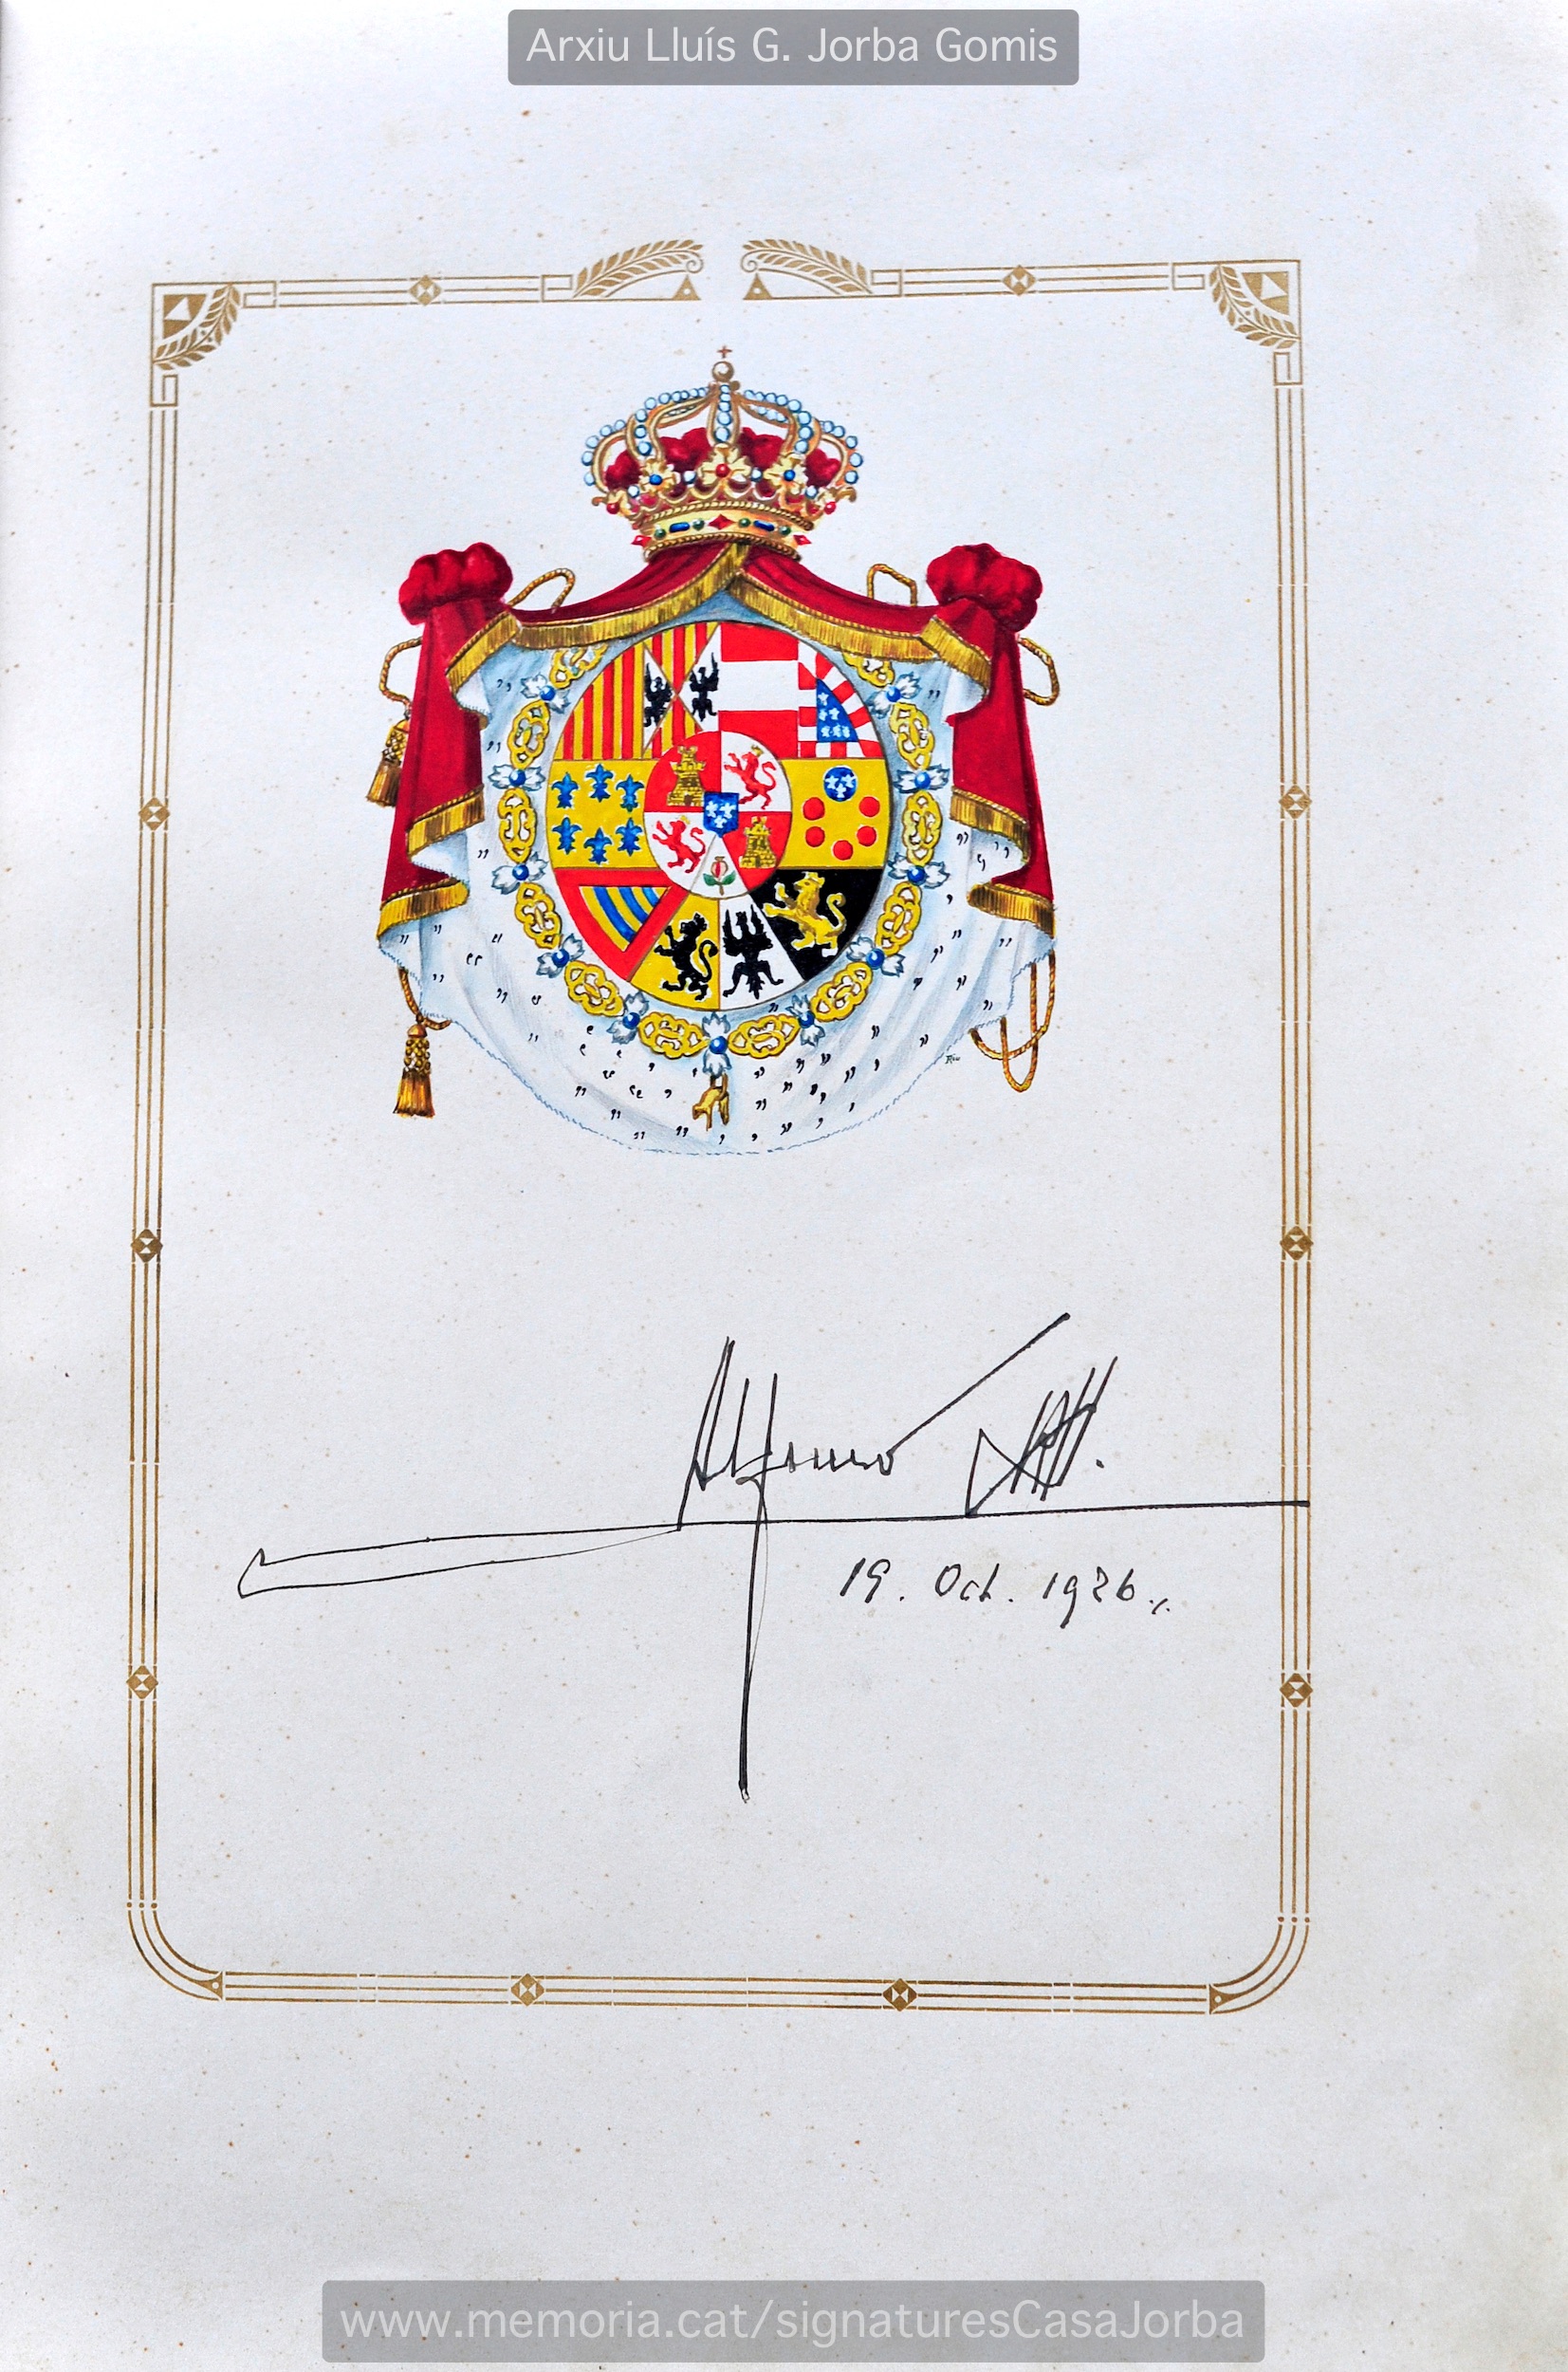 Arxiu Lluís G. Jorba Gomis
Alfonso XIII.
19. Oct. 1926.
www.memoria.cat/signaturesCasaJorba